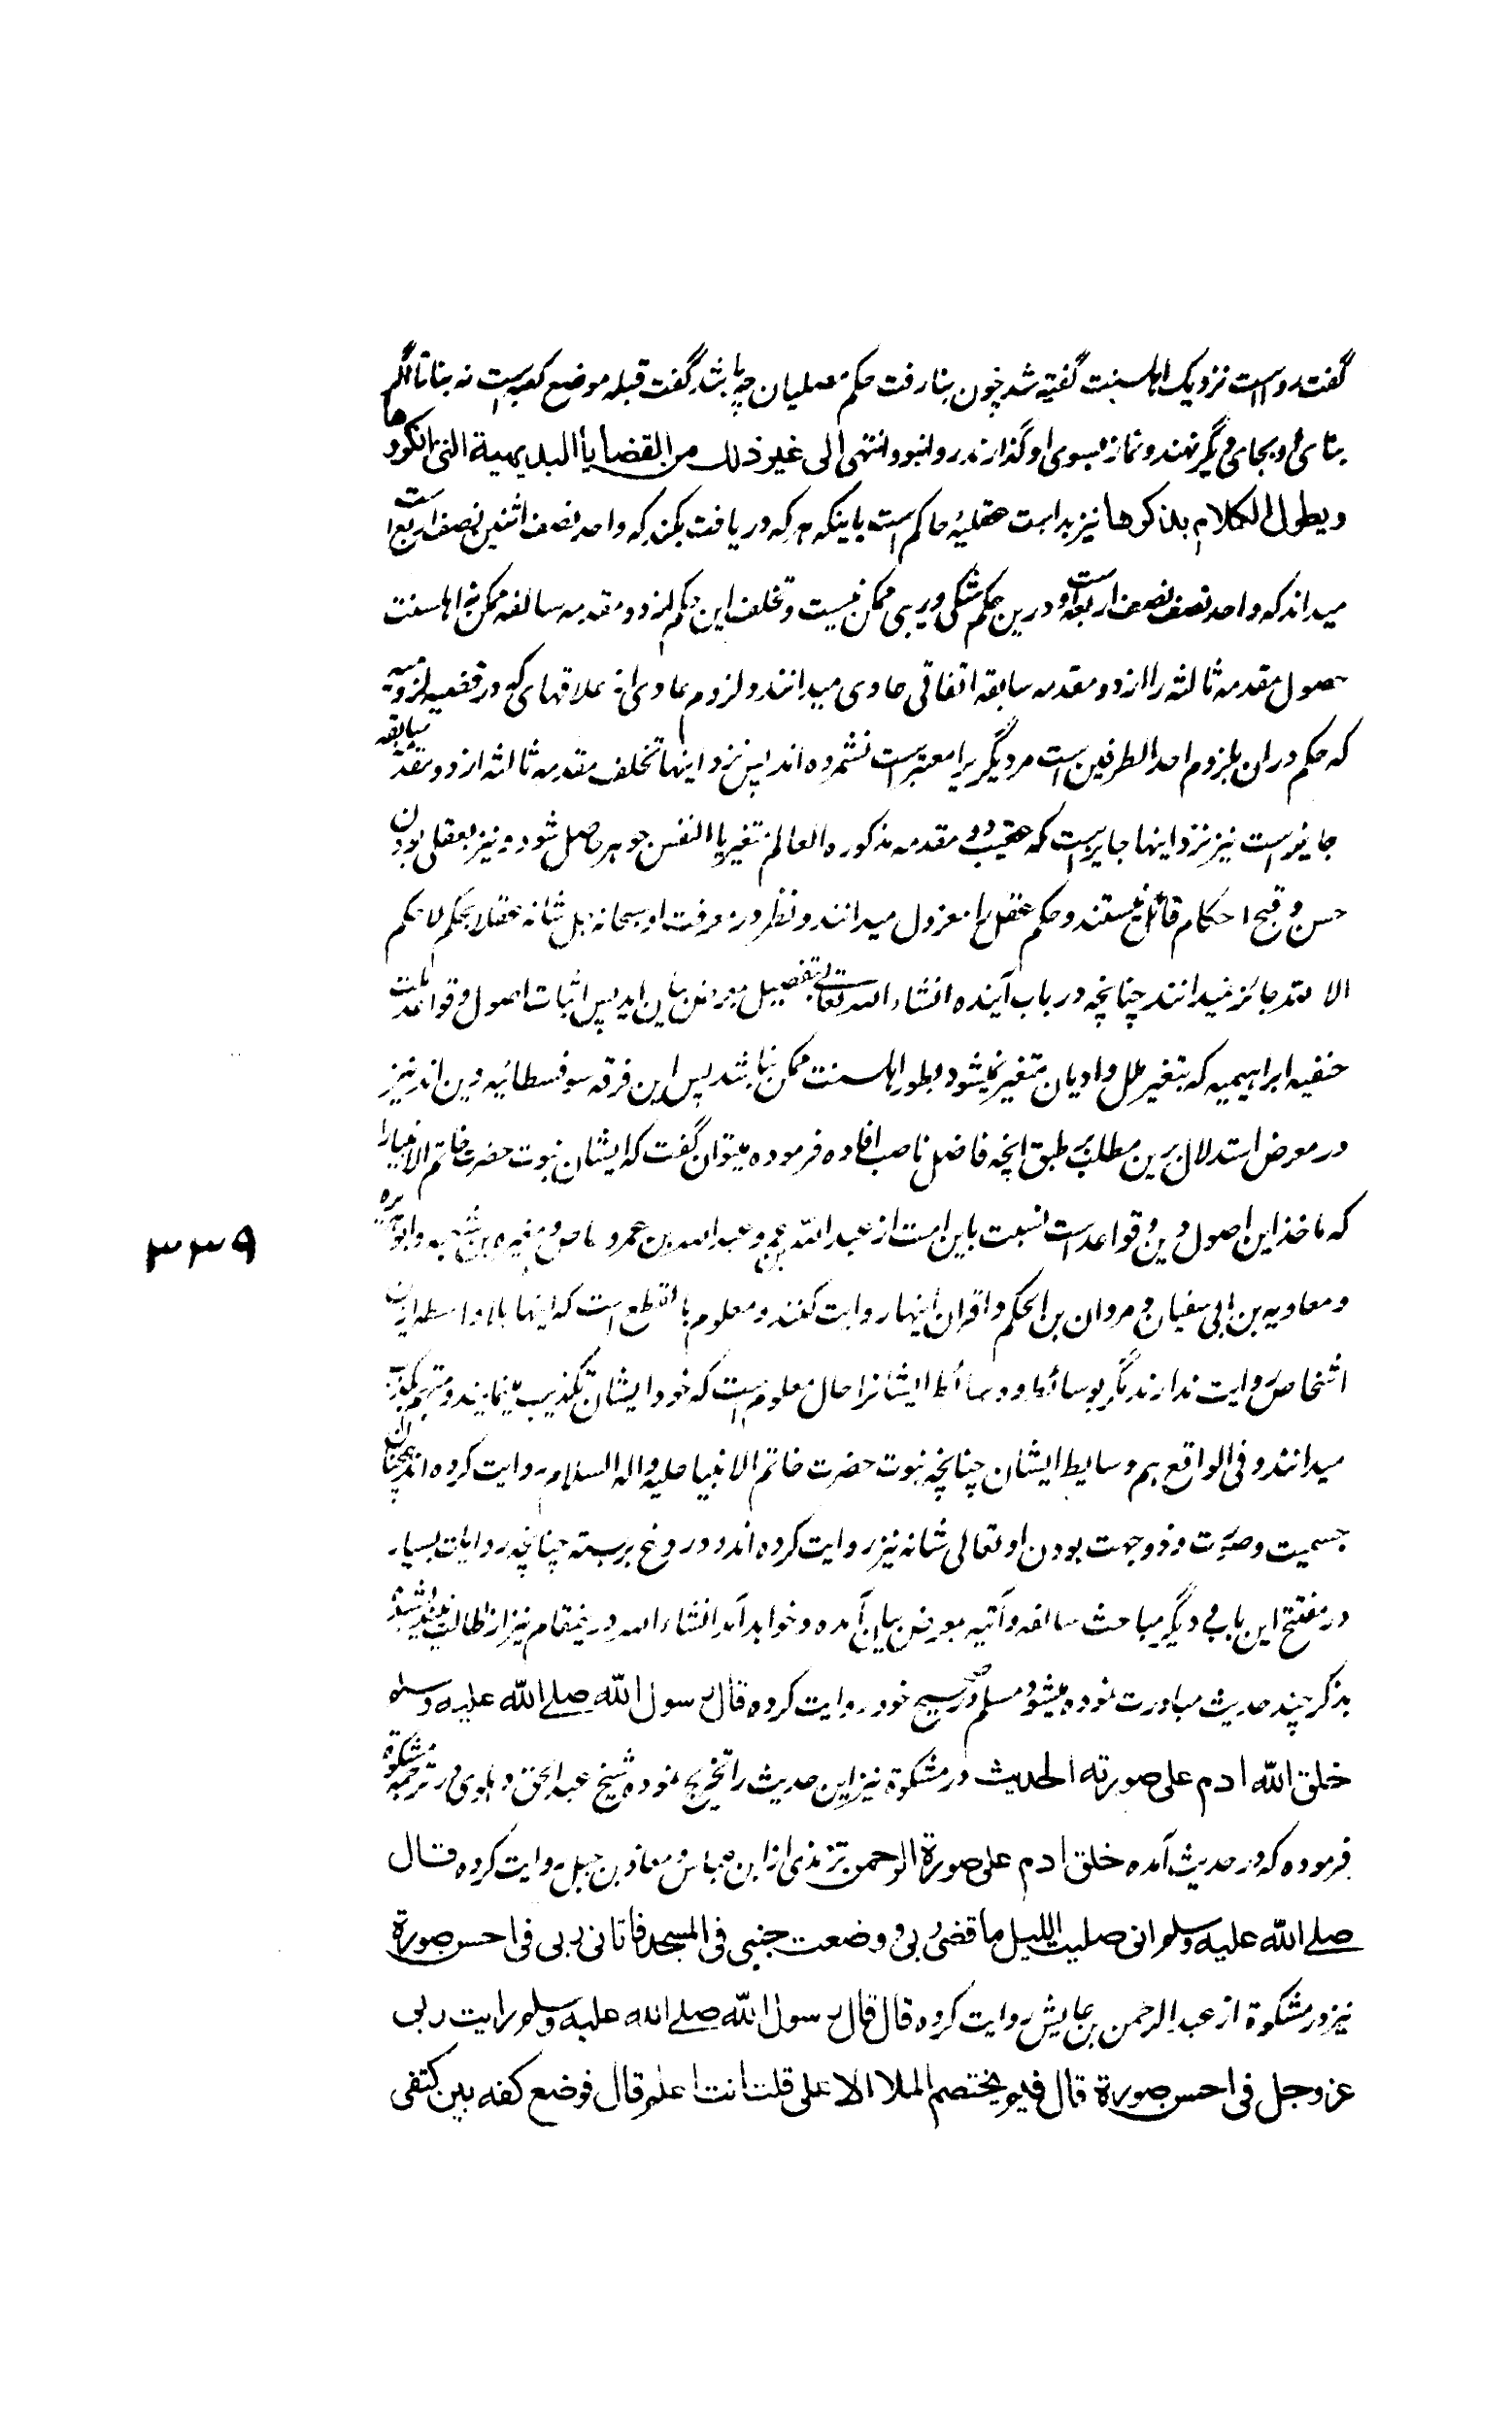 گفت رواست نزدیک اهلسنت گفته شد چون بنا رفت حکم مصلیان چه باشد گفت قبله موضع کعبه است نه بنا تا اگر
بنای او بجای دیگر نهند و نماز بسوی او گذارند روا نبود انتهی الی غیر ذلک من القضایا البدیهیة التی انکروها
و یطول الکلام بذکرها نیز بداهت عقلیه حاکم است باینکه هر که دریافت بکند که واحد نصف اثنین نصف اربع است
میداند که واحد نصف نصف اربعه است و درین حکم شکی و ریبی ممکن نیست و تخلف این حکم از دو مقدمه سالفه ممکن نه اهلسنت
حصول مقدمه ثالثه را از دو مقدمه سابقه اتفاقی عادی میدانند و لزوم عادی از علاقهای که در قضیه لزومیه
که حکم دران بلزوم احد الطرفین است مر دیگریرا معتبر است نشمرده اند پس نزد اینها تخلف مقدمه ثالثه از دو مقدمه سابقه
جایز است نیز نزد اینها جایز است که عقیب دو مقدمه مذکوره العالم متغیر یا النفس جوهر حاصل شود و نیز بعقلی بودن
حسن و قبح احکام قائل نیستند و حکم عقل را معزول میدانند و نظر در معرفت او سبحانه جل شانه عقلا بحکم لا حکم
الا لله جائز نمیدانند چنانچه در باب آینده انشاء الله تعالی بتفصیل بمعرض بیان اید پس اثبات اصول و قواعد ملت
حنفیه ابراهیمیه که بتغیر ملل و ادیان متغیر نمیشود بطور اهلسنت ممکن نباشد پس این فرقه سوفسطائیه دین اند نیز
در معرض استدلال برین مطلب بر طبق انچه فاضل ناصب افاده فرموده میتوان گفت که ایشان نبوت حضرت خاتم الانبیا را
که ماخذ این اصول دین و قواعد است نسبت باین امت از عبد الله بن عمر و عبد الله بن عمرو عاص و مغیره بن شعبه و ابو هریره
و معاویه بن ابی سفیان و مروان بن الحکم و اقران اینها روایت کنند و معلوم بالقطع است که اینها بلا واسطه ازین
اشخاص روایت ندارند مگر بوسائط و وسائط ایشانرا حال معلوم است که خود ایشان تکذیب مینمایند و متهم بکذب
میدانند و فی الواقع هم وسایط ایشان چنانچه نبوت حضرت خاتم الانبیا علیه واله السلام روایت کرده اند همچنان
جسمیت و صورت و ذوجهت بودن او تعالی شانه نیز روایت کرده اند و دروغ بربسته چنانچه روایات بسیار
در مفتتح این باب و دیگر مباحث سالفه و آتیه بمعرض بیان آمده و خواهد آمد انشاء الله درینمقام نیز از اطالت نیندیشیده
بذکر چند حدیث مبادرت نموده میشود مسلم در صحیح خود روایت کرده قال رسول الله صلے الله علیه وسلم
خلق الله ادم علی صورته الحدیث در مشکوة نیز این حدیث را تخریج نموده شیخ عبد الحق دهلوی در ترجمه مشکوة
فرموده که در حدیث آمده خلق ادم علی صورة الرحمن ترمذی از ابن عباس و معاذ بن جبل روایت کرده قال
صلے الله علیه وسلم انی صلیت اللیل ما قضی ربی و وضعت جنبی فی المسجد فاتانی ربی فی احسن صورة
نیز در مشکوة از عبد الرحمن بن عایش روایت کرده قال قال رسول الله صلے الله علیه وسلم رایت ربی
عز و جل فی احسن صورة قال فیم یختصم الملا الاعلی قلت انت اعلم قال فوضع کفه بین کتفی
۳۳۹